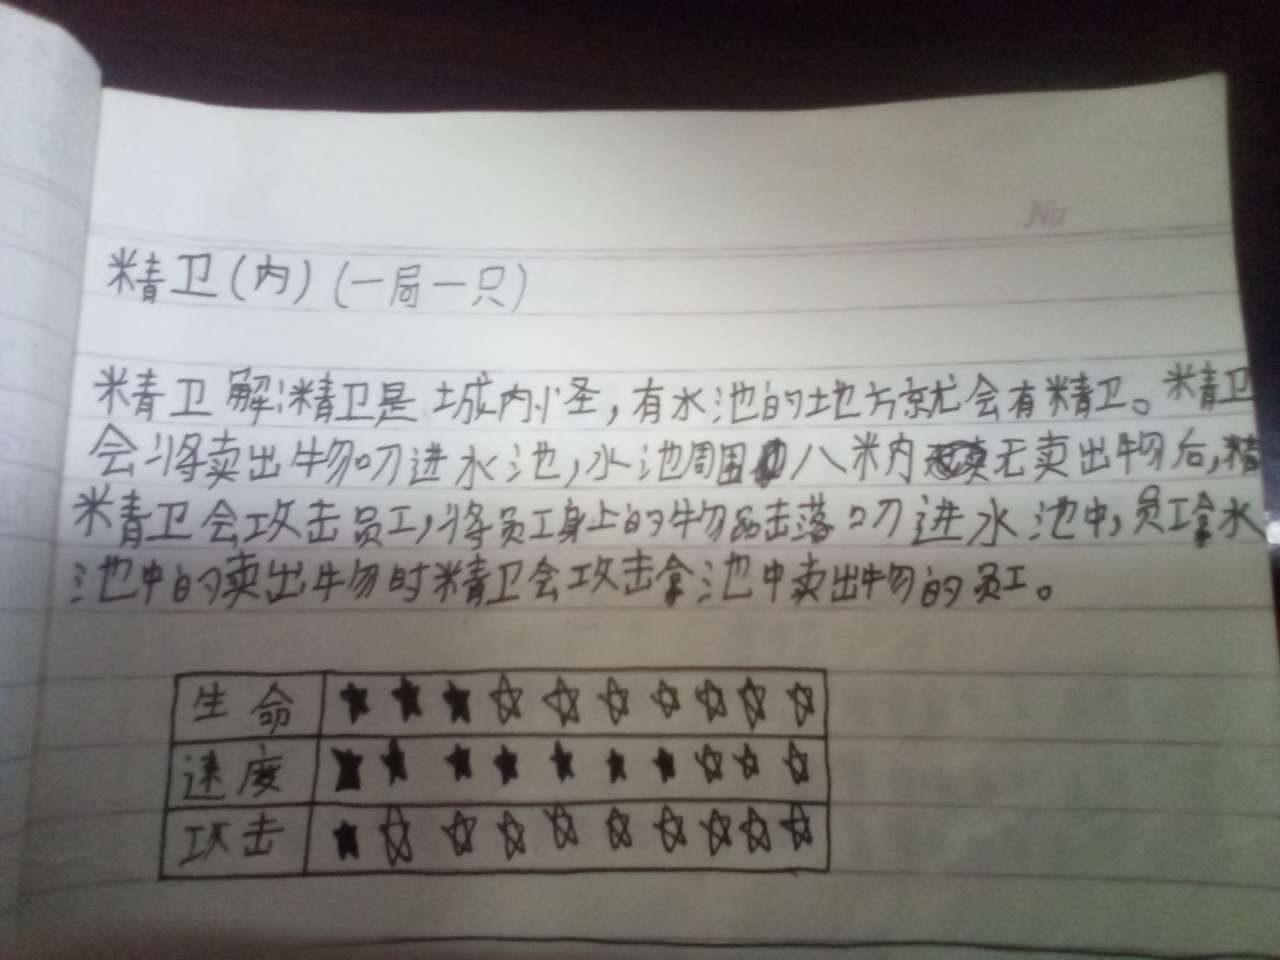 No
精卫(内)(一局一只)
精卫解:精卫是城内小怪,有水池的地方就会有精卫。精卫
会将卖出物叨进水池,水池周围八米内无卖出物后,精
精卫会攻击员工,将员工身上的物品击落叨进水池中,员工拿水
池中的卖出物时精卫会攻击拿池中卖出物的员工。
生命 ★★★☆☆☆☆☆☆☆
速度 ★★★★★★★☆☆☆
攻击 ★☆☆☆☆☆☆☆☆☆